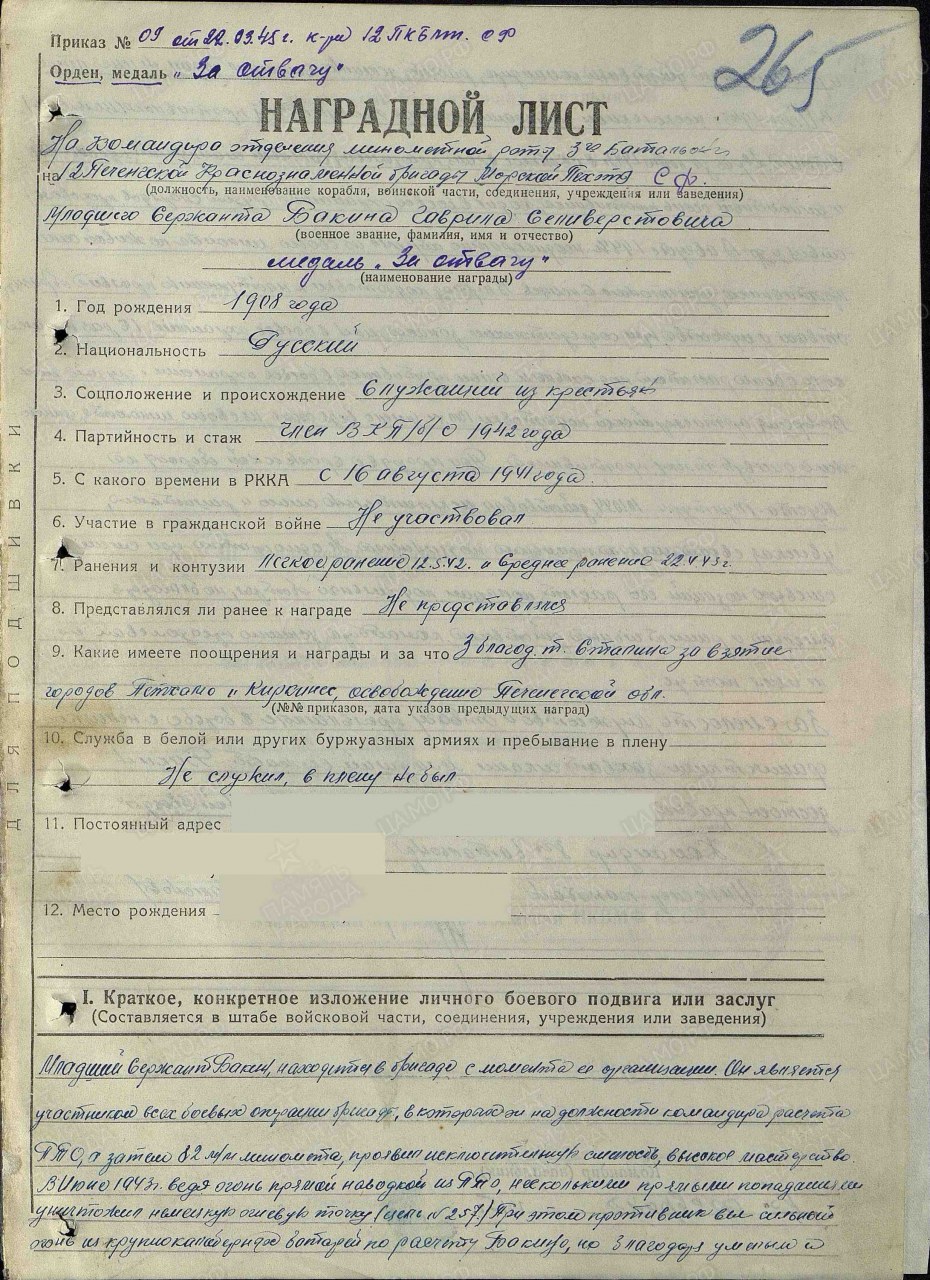 Приказ № 09 от 22.03.45 г. к-ра 12 ПКБМП. СФ
265
Орден, медаль "За отвагу"
НАГРАДНОЙ ЛИСТ
На командира отделения минометной роты 3го батальона
на 12 Печенгской Краснознаменной бригады Морской Пехоты СФ.
(должность, наименование корабля, воинской части, соединения, учреждения или заведения)
Младшего Сержанта Бакина Гаврила Селиверстовича
(военное звание, фамилия, имя и отчество)
медаль "За отвагу"
(наименование награды)
1. Год рождения 1908 года
2. Национальность Русский
3. Соцположение и происхождение Служащий из крестьян
4. Партийность и стаж член ВКП/б/ с 1942 года
5. С какого времени в РККА с 16 августа 1941 года.
6. Участие в гражданской войне Не участвовал
7. Ранения и контузии Легкое ранение 12.5.42. и Среднее ранение 22.4.43 г.
8. Представлялся ли ранее к награде Не представлялся
9. Какие имеете поощрения и награды и за что 3 благод. т. Сталина за взятие
городов Петсамо и Киркинес, освобождение Печенгской обл.
(№№ приказов, дата указов предыдущих наград)
10. Служба в белой или других буржуазных армиях и пребывание в плену
Не служил, в плену не был
11. Постоянный адрес
12. Место рождения
ДЛЯ ПОДШИВКИ
I. Краткое, конкретное изложение личного боевого подвига или заслуг
(Составляется в штабе войсковой части, соединения, учреждения или заведения)
Младший Сержант Бакин, находится в бригаде с момента ее организации. Он является
участником всех боевых операции бригады, в которых он на должности командира расчета
ПТО, а затем 82 м/м миномета, проявил исключительную смелость, высокое мастерство.
В Июне 1943 г. ведя огонь прямой наводкой из ПТО, несколькими прямыми попаданиями
уничтожил немецкую огневую точку (цель №257.) При этом противник вел сильный
огонь из крупнокалиберных батарей по расчету Бакина, но благодаря умелым и